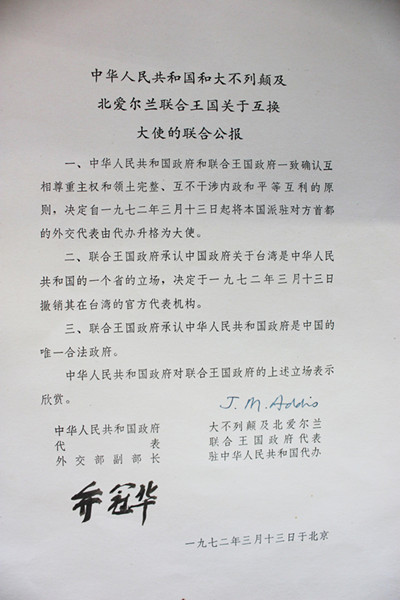 中华人民共和国和大不列颠及
北爱尔兰联合王国关于互换
大使的联合公报
一、中华人民共和国政府和联合王国政府一致确认互
相尊重主权和领土完整、互不干涉内政和平等互利的原
则，决定自一九七二年三月十三日起将本国派驻对方首都
的外交代表由代办升格为大使。
二、联合王国政府承认中国政府关于台湾是中华人民
共和国的一个省的立场，决定于一九七二年三月十三日
撤销其在台湾的官方代表机构。
三、联合王国政府承认中华人民共和国政府是中国的
唯一合法政府。
中华人民共和国政府对联合王国政府的上述立场表示
欣赏。
J. M. Addis
中华人民共和国政府 大不列颠及北爱尔兰
代表 联合王国政府代表
外交部副部长 驻中华人民共和国代办
乔冠华
一九七二年三月十三日于北京